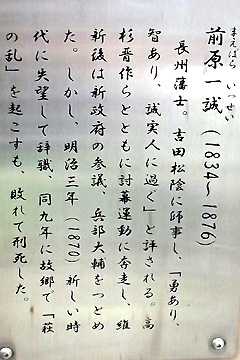 まえばら いっせい
前原一誠（1834～1876）
長州藩士。吉田松陰に師事し、「勇あり、
智あり、誠実人に過ぐ」と評される。高
杉晋作らとともに討幕運動に奔走し、維
新後は新政府の参議、兵部大輔をつとめ
た。しかし、明治三年（1870）新しい時
代に失望して辞職、同九年に故郷で「萩
の乱」を起こすも、敗れて刑死した。